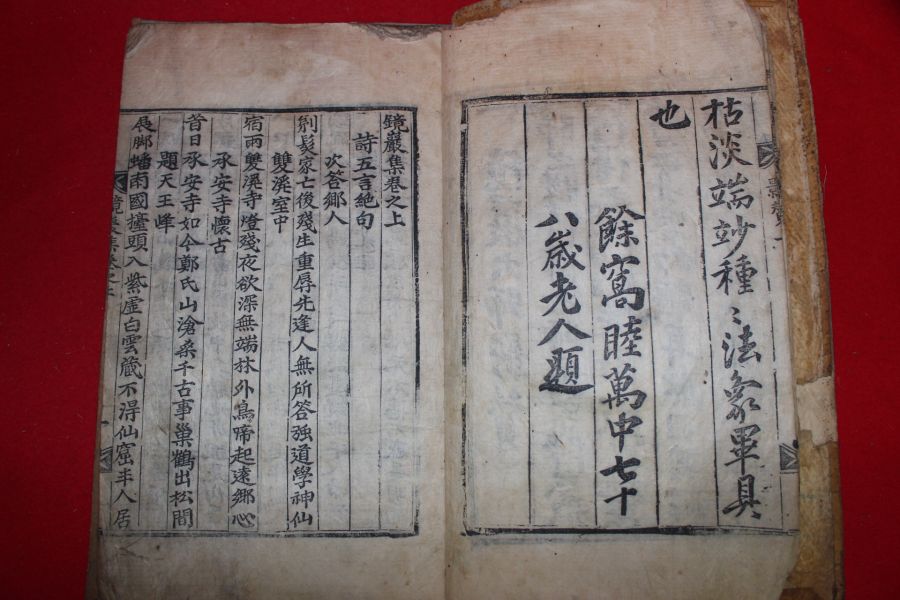 枯淡端妙種〻法象畢具
也
餘窩睦萬中七十
八歲老人題
鏡巖集卷之上
詩五言絶句
次答鄉人
剃髮家亡後殘生重辱先逢人無所答強道學神仙
雙溪室中
宿雨雙溪寺燈殘夜欲深無端林外鳥啼起遠鄉心
承安寺懷古
昔日承安寺如今鄭氏山滄桑千古事巢鶴出松間
題天王峰
展脚蟠南國擡頭入紫虛白雲藏不得仙窟半人居